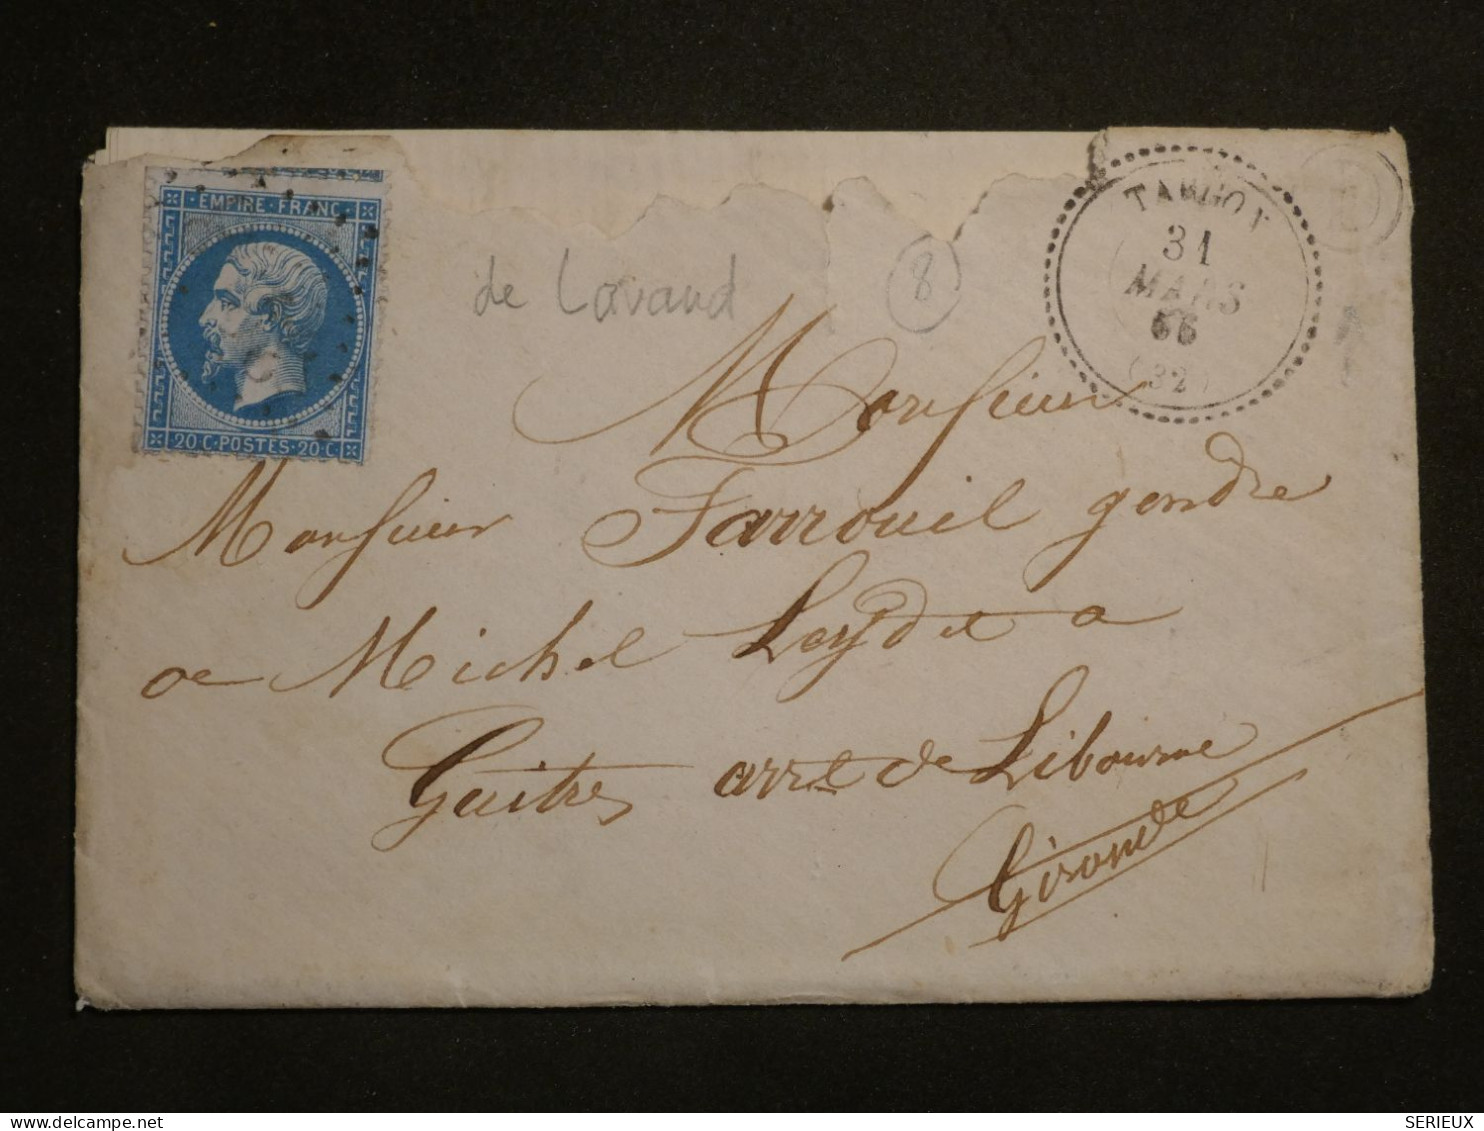 EMPIRE · FRANC
20 C · POSTES · 20 C
de Lavaud
8
TARGON
31
MARS
66
(32)
Monsieur
Monsieur Farrouil gendre
de Michel Leydet a
Guitres arr.t de Libourne
Gironde
SERIEUX